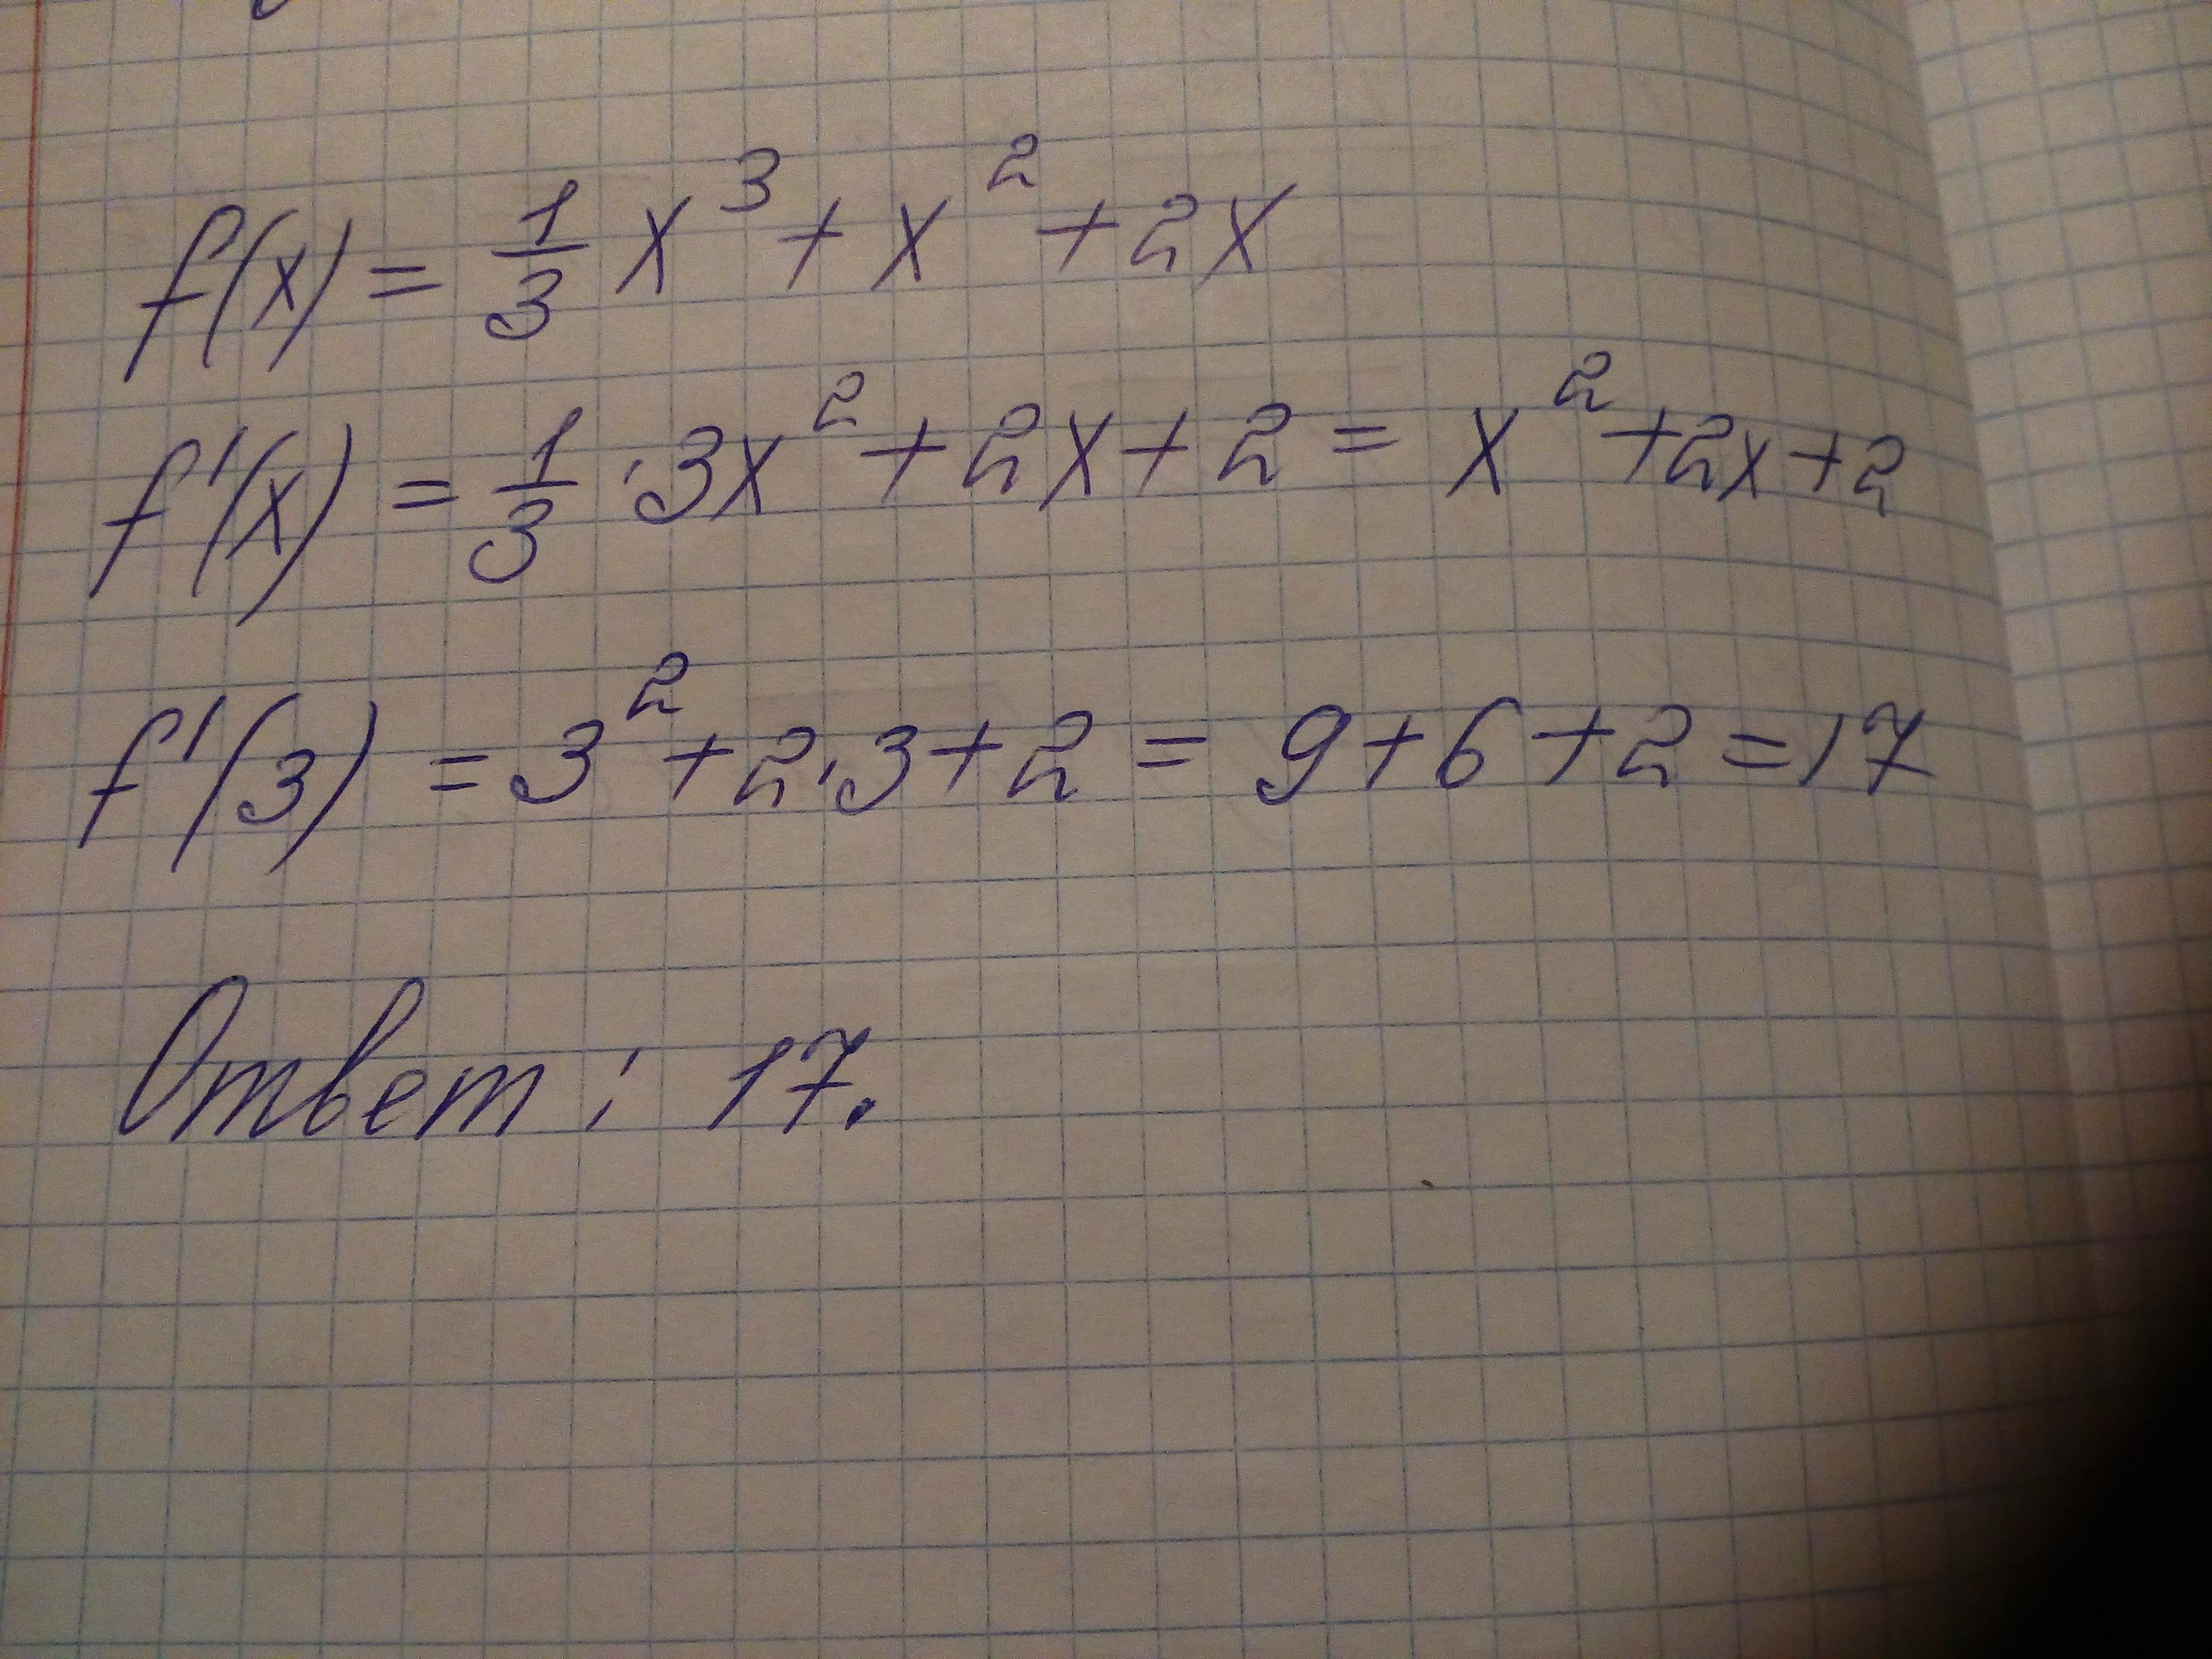 f(x) = 1/3 x³ + x² + 2x
f'(x) = 1/3 · 3x² + 2x + 2 = x² + 2x + 2
f'(3) = 3² + 2·3 + 2 = 9 + 6 + 2 = 17
Ответ: 17.